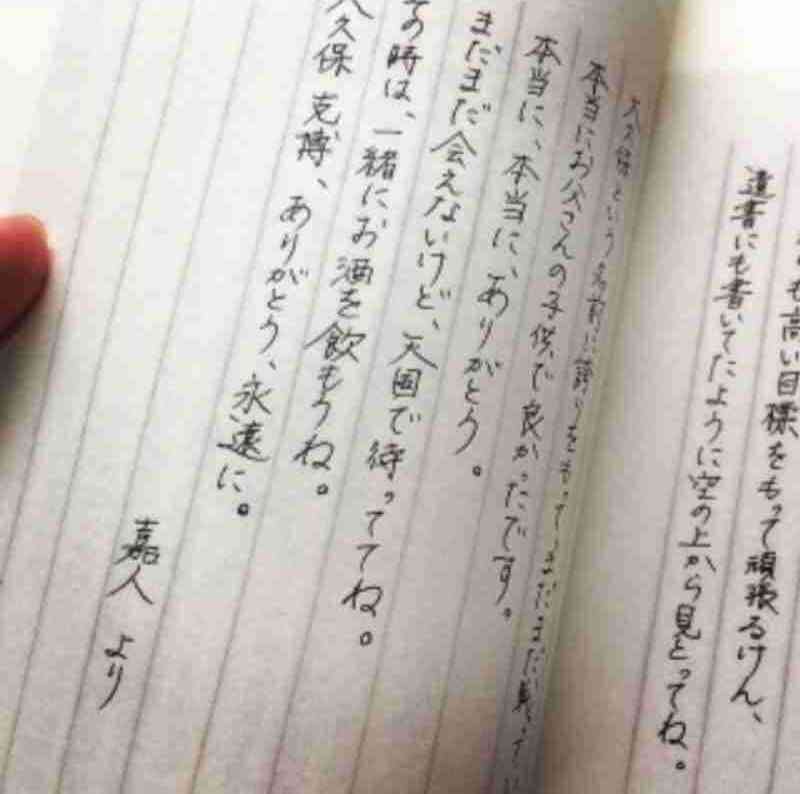 も高い目標をもって頑張るけん、
遺書にも書いてたように空の上から見とってね。
大久保という名前に誇りをもって、まだまだ
本当にお父さんの子供で良かったです。
本当に、本当に、ありがとう。
まだまだ会えないけど、天国で待っててね。
の時は、一緒にお酒を飲もうね。
久保 克博、ありがとう、永遠に。
嘉人 より